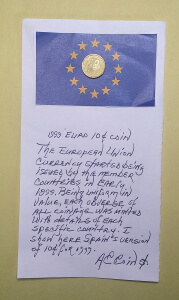 1999 EURO 10¢ COIN
THE EUROPEAN UNION
CURRENCY STARTED BEING
ISSUED BY THE MEMBER
COUNTRIES IN EARLY
1999. BEING UNIFORM IN
VALUE, EACH OBVERSE OF
ALL COINAGE WAS MINTED
WITH DETAILS OF EACH
SPECIFIC COUNTRY. I
SHOW HERE SPAIN'S VERSION
OF 10¢ FOR 1999.